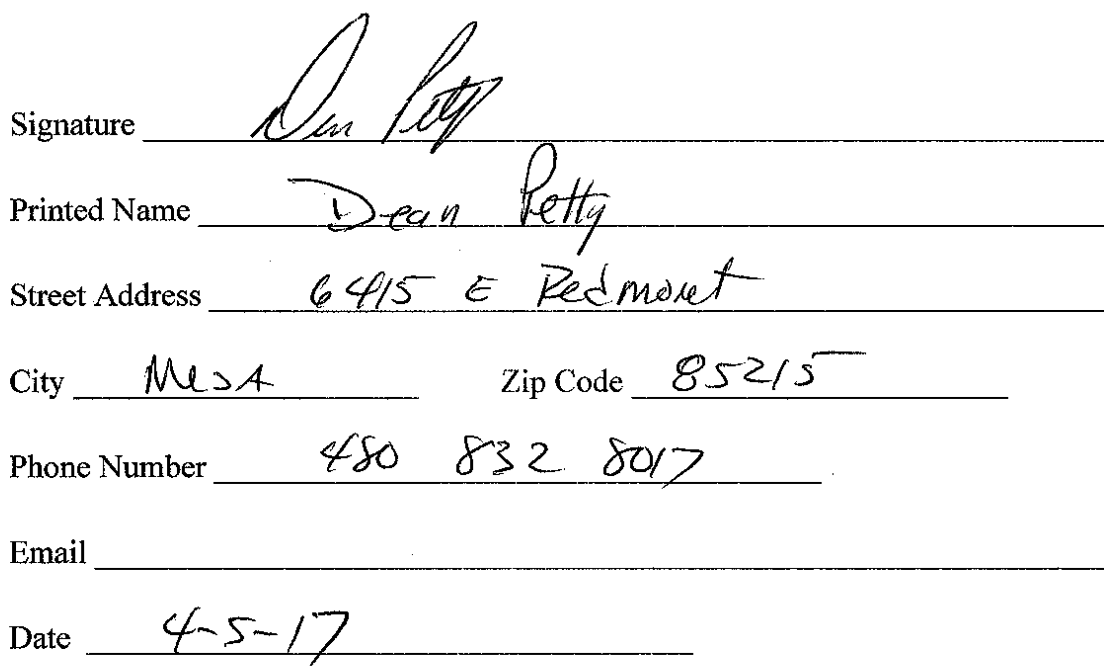 Signature Dean Petty
Printed Name Dean Petty
Street Address 6415 E Redmont
City Mesa Zip Code 85215
Phone Number 480 832 8017
Email
Date 4-5-17